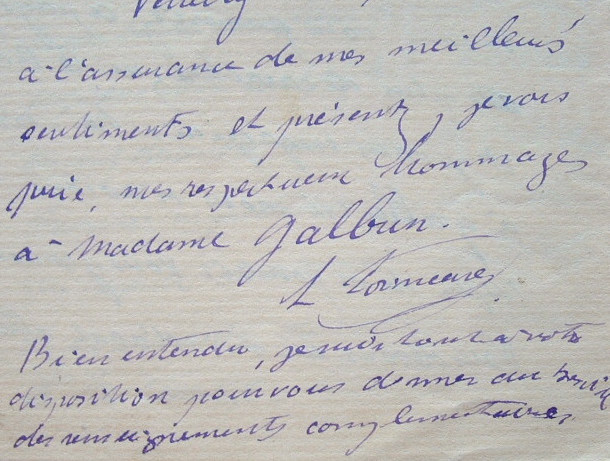 Veuillez
à l'assurance de mes meilleurs
sentiments et présentez, je vous
prie, mes respectueux hommages
à Madame Galbrun.
L
Bien entendu, je suis tout à votre
disposition pour vous donner au besoin
des renseignements complémentaires